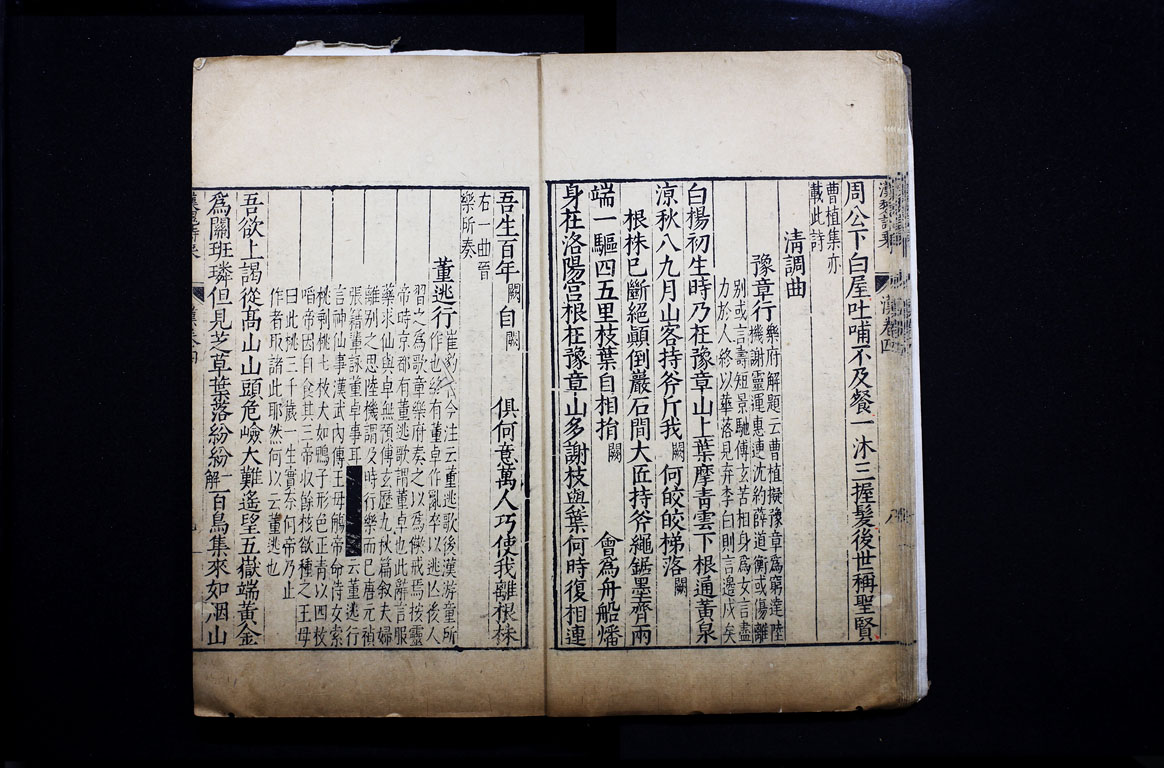 漢魏詩乗
漢卷四
八
周公下白屋吐哺不及餐一沐三握髮後世稱聖賢
曹植集亦
載此詩
清調曲
豫章行
樂府解題云曹植擬豫章為窮達陸
機謝靈運惠連沈約薛道衡或傷離
别或言壽短景馳傅玄苦相身為女言盡
力於人終以華落見弃李白則言邊戍矣
白楊初生時乃在豫章山上葉摩青雲下根通黃泉
凉秋八九月山客持斧斤我闕何皎皎梯落闕
根株已斷絕顛倒巖石間大匠持斧繩鋸墨齊兩
端一驅四五里枝葉自相捐闕會為舟船燔
身在洛陽宫根在豫章山多謝枝與葉何時復相連
吾生百年闕自闕俱何意萬人巧使我離根株
右一曲晉
樂所奏
董逃行
崔豹古今注云董逃歌後漢游童所
作也終有董卓作亂卒以逃亾後人
習之為歌章樂府奏之以為儆戒焉按靈
帝時京都有董逃歌謂董卓也此辭言服
藥求仙與卓無預傅玄歷九秋篇叙夫婦
離别之思陸機謂及時行樂而已唐元稹
張籍董詠董卓事耳云董逃行
言神仙事漢武内傳王母觴帝命侍女索
桃剩桃七枝大如鴨子形色正青以四枝
啗帝因自食其三帝收餘枝欲種之王母
曰此桃三千歲一生實奈何帝乃止
作者取諸此耶然何以云董逃也
吾欲上謁從高山山頭危嶮大難遥望五嶽端黃金
為闕班璘但見芝草葉落紛紛解一百鳥集來如烟山